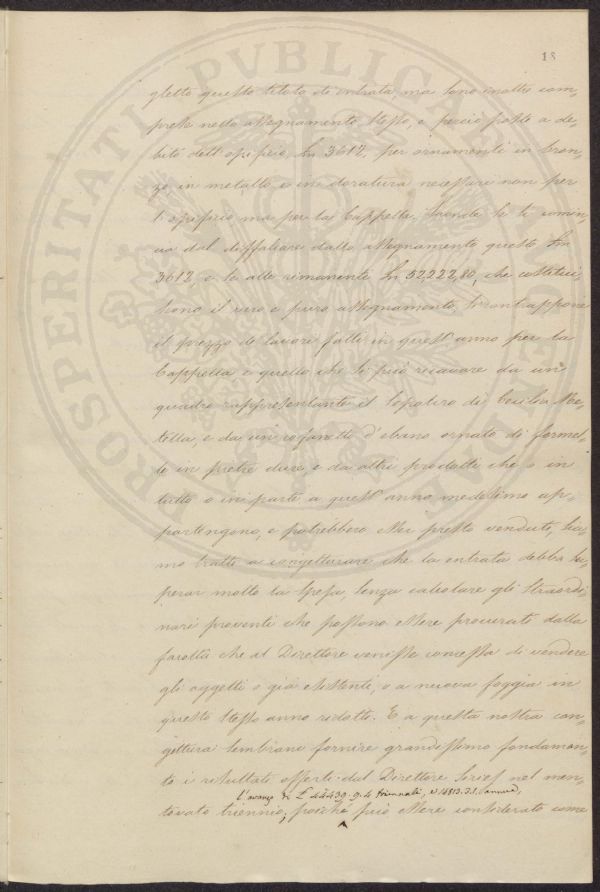 18
gletto questo titolo di entrata, ma sono inoltre com-
prese nello assegnamento stesso, e perciò poste a de-
bito dell'opificio, Ln 3612, per ornamenti in bron-
zo, in metallo, e in doratura necessari non per
l'opificio ma per la Cappella. Laonde se si comin-
cia dal diffalcare dallo assegnamento queste Ln
3612, e se alle rimanenti Ln 52,222,80, che costitui-
scono il vero e puro assegnamento, si contrappone
il prezzo de' lavori fatti in quest'anno per la
Cappella e quello che si può ricavare da un
quadro rappresentante il Sepolcro di Cecilia Me-
tella, e da un cofanetto d'ebano ornato di formel-
le in pietre dure, e da altri prodotti che o in
tutto o in parte a quest'anno medesimo ap-
partengono, e potrebbero esser presto venduti, sia-
mo tratti a congetturare che la entrata debba su-
perar molto la spesa, senza calcolare gli straordi-
nari proventi che possono essere procurati dalla
facoltà che al Direttore venisse concessa di vendere
gli oggetti o già esistenti, o a nuova foggia in
questo stesso anno ridotti. E a questa nostra con-
gettura sembrano fornire grandissimo fondamen-
to i resultati offerti dal Direttore Siries nel men-
l'avanzo di £ 44439.9.4 triennali, o 14813.3.1. annue,
tovato triennio, poichè può essere considerato come
PROSPERITATI PVBLICAE